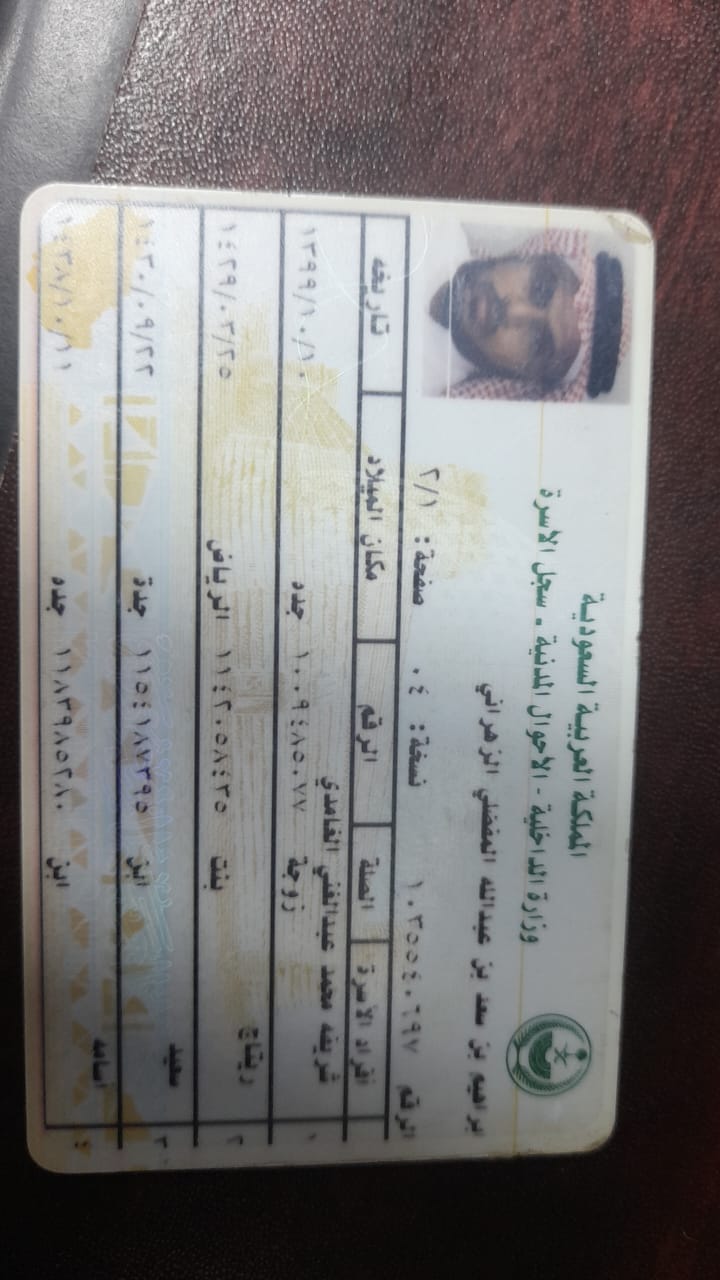 المملكة العربية السعودية
وزارة الداخلية - الأحوال المدنية - سجل الأسرة
ابراهيم بن سعد بن عبدالله المفضلي الزهراني
الرقم ١٠٣٥٥٤٠٦٩٧ نسخة: ٠٤ صفحة: ٢/١
افراد الأسرة الصلة الرقم مكان الميلاد تاريخه
١ شريفه محمد عبدالغني الغامدي
زوجة ١٠٠٩٤٨٥٠٧٧ جده ١٣٩٩/١٠/١٠
٢ ريتاج
بنت ١١٤٢٠٥٨٤٣٥ الرياض ١٤٢٩/٠٣/٢٥
٣ سعيد
ابن ١١٥٤١٨٧٣٩٥ جدة ١٤٣٠/٠٩/٢٢
٤ اسامه
ابن ١١٨٣٩٨٥٢٨٠ جده ١٤٣٨/١٠/١١